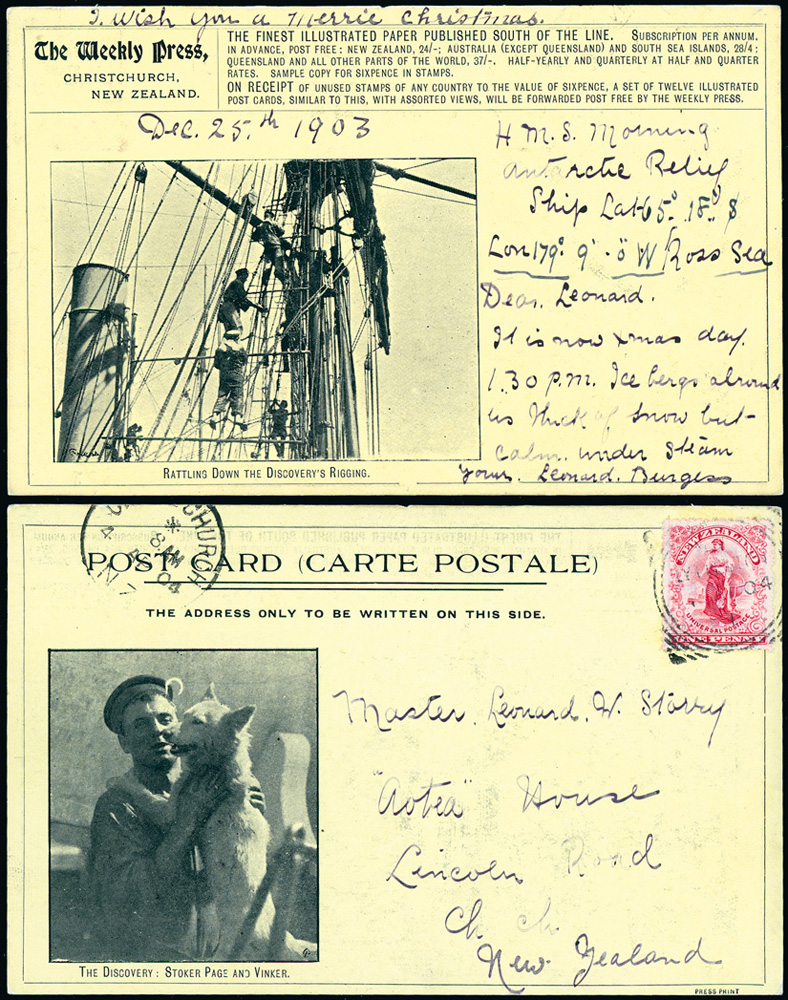 I Wish You a Merrie Christmas.
The Weekly Press,
CHRISTCHURCH,
NEW ZEALAND.
THE FINEST ILLUSTRATED PAPER PUBLISHED SOUTH OF THE LINE. SUBSCRIPTION PER ANNUM,
IN ADVANCE, POST FREE: NEW ZEALAND, 24/-; AUSTRALIA (EXCEPT QUEENSLAND) AND SOUTH SEA ISLANDS, 28/4;
QUEENSLAND AND ALL OTHER PARTS OF THE WORLD, 37/-. HALF-YEARLY AND QUARTERLY AT HALF AND QUARTER
RATES. SAMPLE COPY FOR SIXPENCE IN STAMPS.
ON RECEIPT OF UNUSED STAMPS OF ANY COUNTRY TO THE VALUE OF SIXPENCE, A SET OF TWELVE ILLUSTRATED
POST CARDS, SIMILAR TO THIS, WITH ASSORTED VIEWS, WILL BE FORWARDED POST FREE BY THE WEEKLY PRESS.
Dec. 25.th 1903
H.M.S. Morning
Antarctic Relief
Ship Lat 65° 18° S
Lon 179° 9' - 0 W Ross Sea
Dear. Leonard.
It is now xmas day.
1.30 P.M. Ice bergs alround
us thick of snow but-
calm. under steam
Yours. Leonard. Burgess
RATTLING DOWN THE DISCOVERY'S RIGGING.
CHURCH
8 AM
04
NZ
POST CARD (CARTE POSTALE)
THE ADDRESS ONLY TO BE WRITTEN ON THIS SIDE.
NEW ZEALAND
04
UNIVERSAL POSTAGE
ONE PENNY
Master. Leonard. W. Storry
"Aotea" House
Lincoln Road
Ch ch
New Zealand
THE DISCOVERY: STOKER PAGE AND VINKER.
PRESS PRINT